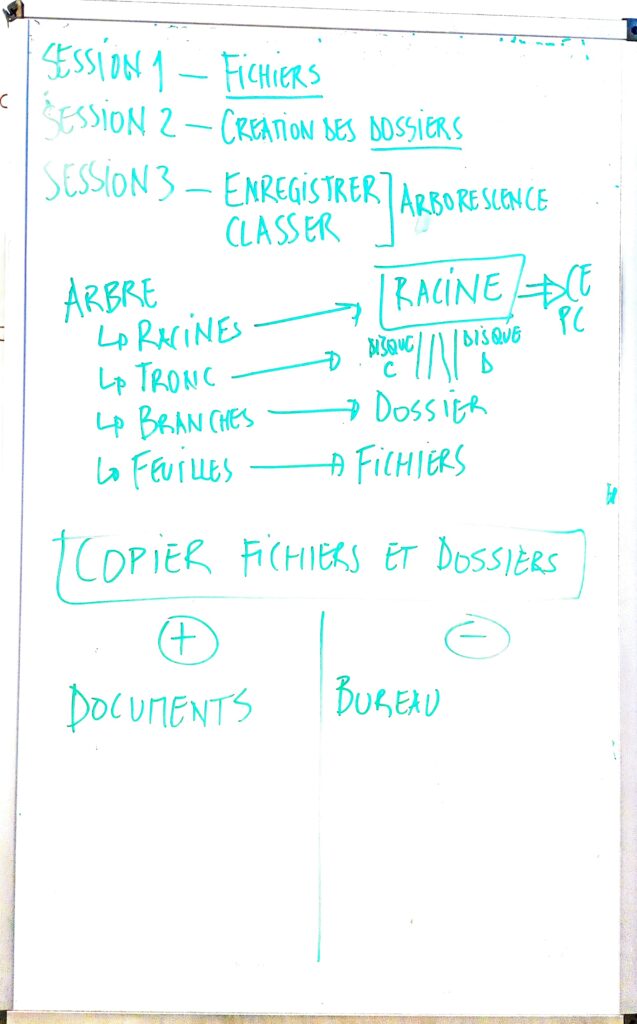 SESSION 1 — FICHIERS
SESSION 2 — CREATION DES DOSSIERS
SESSION 3 — ENREGISTRER
CLASSER
ARBORESCENCE
ARBRE
↳ RACINES → RACINE ⇒ CE PC
↳ TRONC → DISQUE C DISQUE D
↳ BRANCHES → DOSSIER
↳ FEUILLES → FICHIERS
COPIER FICHIERS ET DOSSIERS
+ −
DOCUMENTS BUREAU